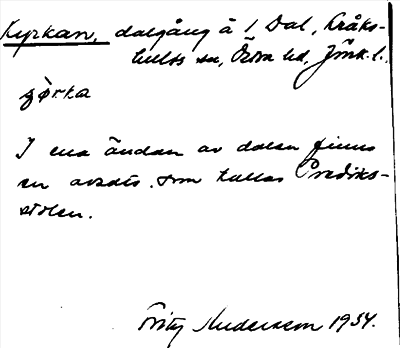 Kyrkan, dalgång å 1 Dal, Kråks-
hults sn, Östra hd, Jönk. l.
çòrka
I ena ändan av dalen finns
en avsats som kallas Predik-
stolen.
Fritz Anderson 1934.